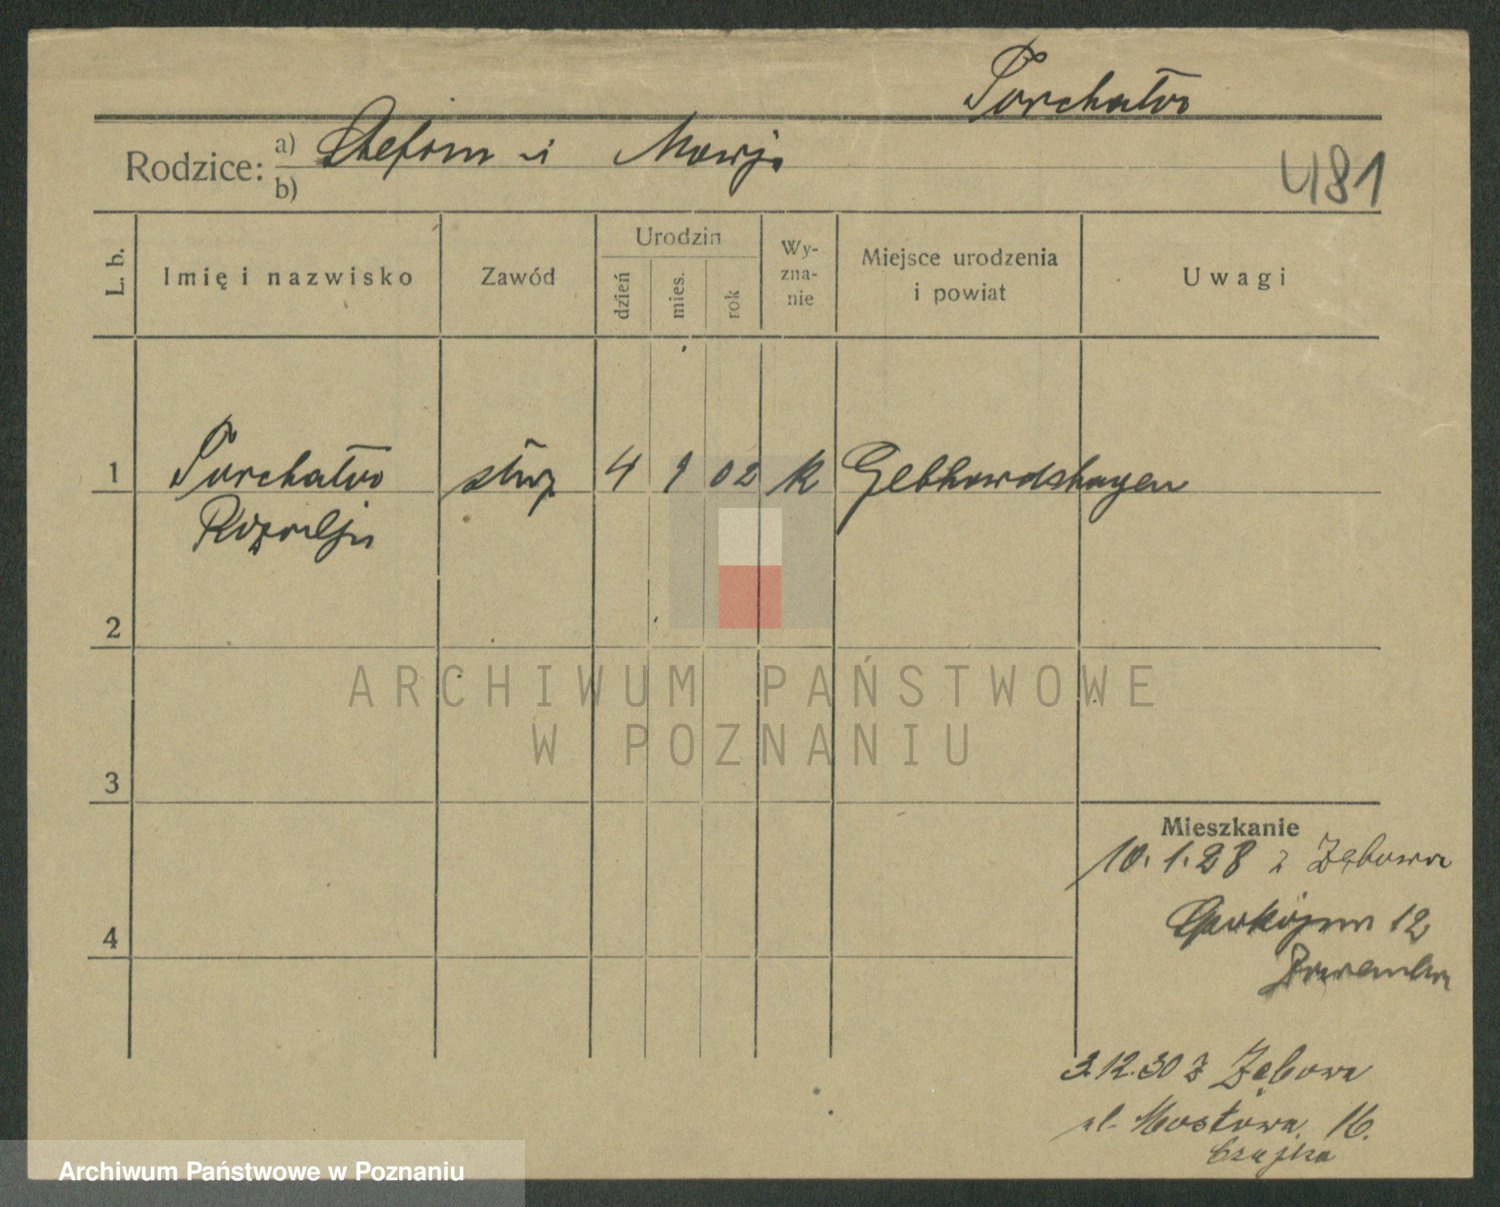 Purchatw
Rodzice: a) Stefan i Marja
b)
481
L. b. Imię i nazwisko Zawód Urodzin dzień mies. rok Wy-zna-nie Miejsce urodzenia i powiat Uwagi
1 Purchatw służ 4 9 02 k Gebhardshagen
Rozalja
2
3
4
Mieszkanie
10.1.28 z Zębowa
12
3.12.30 z Zębowa
ul. Mostowa 16.
Czajka
ARCHIWUM PAŃSTWOWE
W POZNANIU
Archiwum Państwowe w Poznaniu